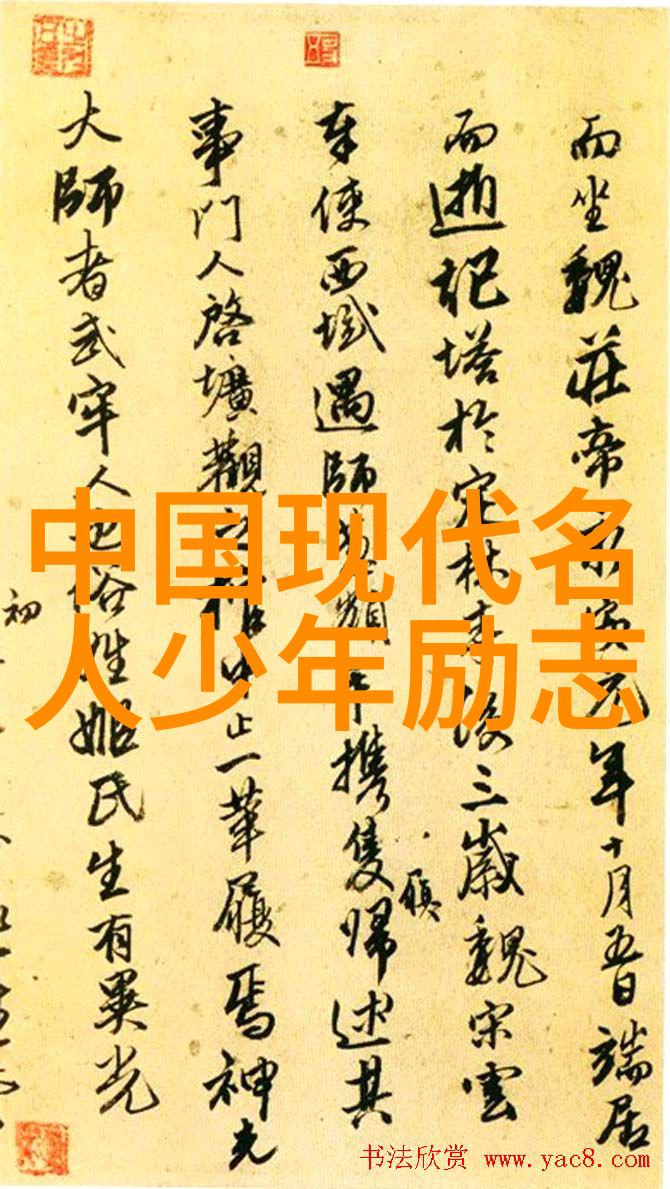 而坐魏莊帝元年十月五日端居
而逝記塔於定林後三歲魏宋雲
奉使西域遇師手攜隻歸述其
履
事門人啓壙觀之棺中止一革履焉神光
大師者武牢人也俗姓姬氏生有異光
初
中国现代名
人少年励志
书法欣赏 www.yac8.com